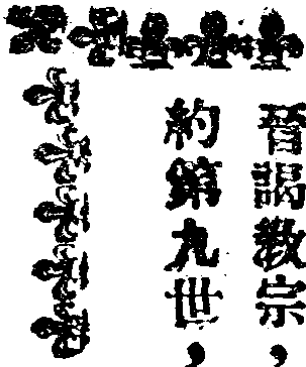 晉謁教宗，
約第九世，